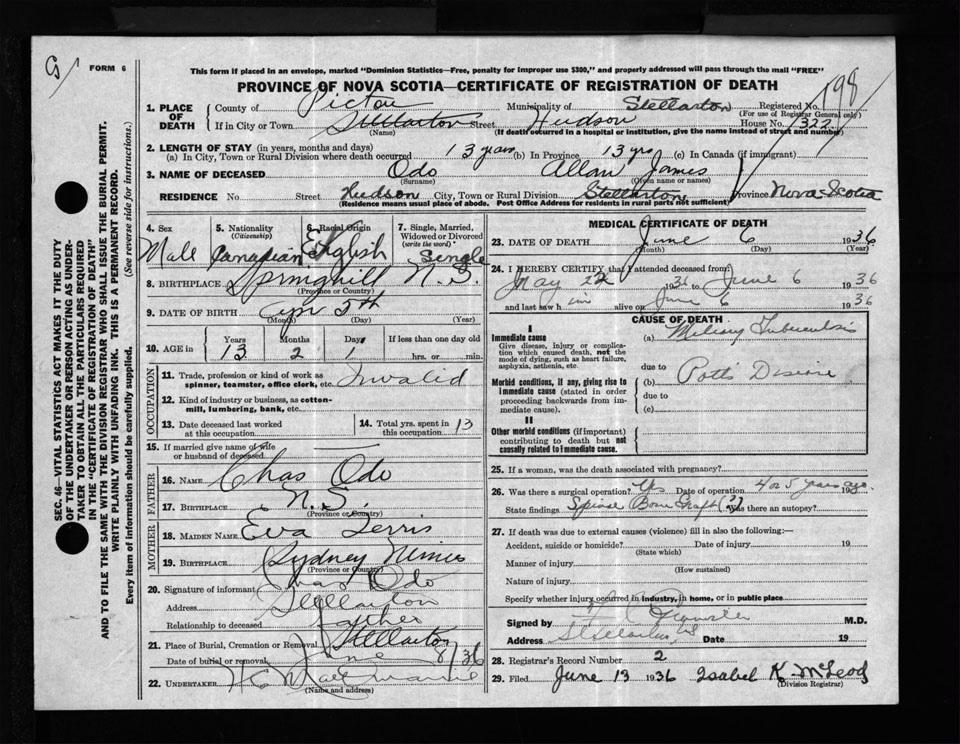 G
FORM 6
This form if placed in an envelope, marked "Dominion Statistics—Free, penalty for improper use $300," and properly addressed will pass through the mail "FREE"
PROVINCE OF NOVA SCOTIA—CERTIFICATE OF REGISTRATION OF DEATH
198
1. PLACE OF DEATH
County of Pictou Municipality of Stellarton Registered No.
(For use of Registrar General only)
If in City or Town Stellarton Street Hudson House No. 1322
(Name) (If death occurred in a hospital or institution, give the name instead of street and number)
2. LENGTH OF STAY (in years, months and days)
(a) In City, Town or Rural Division where death occurred 13 years (b) In Province 13 yrs (c) In Canada (if immigrant)
3. NAME OF DECEASED Odo Allan James
(Surname) (Given name or names)
RESIDENCE No Street Hudson City, Town or Rural Division Stellarton Province Nova Scotia
(Residence means usual place of abode. Post Office Address for residents in rural parts not sufficient)
4. Sex 5. Nationality (Citizenship) 6. Racial Origin 7. Single, Married, Widowed or Divorced (write the word)
Male Canadian English Single
8. BIRTHPLACE Springhill N. S.
(Province or Country)
9. DATE OF BIRTH Apr 5th
(Month) (Day) (Year)
10. AGE in Years Months Days If less than one day old
13 2 1 hrs. or min.
OCCUPATION
11. Trade, profession or kind of work as spinner, teamster, office clerk, etc. Invalid
12. Kind of industry or business, as cotton-mill, lumbering, bank, etc.
13. Date deceased last worked at this occupation
14. Total yrs. spent in this occupation 13
15. If married give name of wife or husband of deceased
FATHER
16. NAME Chas Odo
17. BIRTHPLACE N. S.
(Province or Country)
MOTHER
18. MAIDEN NAME Eva Terris
19. BIRTHPLACE Sydney Mines
(Province or Country)
20. Signature of informant Chas Odo
Address Stellarton
Relationship to deceased Father
21. Place of Burial, Cremation or Removal Stellarton
Date of burial or removal June 8/36
22. UNDERTAKER
(Name and address)
MEDICAL CERTIFICATE OF DEATH
23. DATE OF DEATH June 6 1936
(Month) (Day) (Year)
24. I HEREBY CERTIFY that I attended deceased from:
May 22 1936 to June 6 1936
and last saw him alive on June 6 1936
CAUSE OF DEATH
I
Immediate cause
Give disease, injury or complication which caused death, not the mode of dying, such as heart failure, asphyxia, asthenia, etc.
(a) Miliary Tuberculosis
due to
Morbid conditions, if any, giving rise to immediate cause (stated in order proceeding backwards from immediate cause).
(b) Potts Disease
due to
(c)
II
Other morbid conditions (if important) contributing to death but not causally related to immediate cause.
25. If a woman, was the death associated with pregnancy?
26. Was there a surgical operation? Yes Date of operation 4 or 5 years ago 193
State findings Spinal Bone Graft (?) Was there an autopsy?
27. If death was due to external causes (violence) fill in also the following:—
Accident, suicide or homicide? Date of injury 19
(State which)
Manner of injury
(How sustained)
Nature of injury
Specify whether injury occurred in industry, in home, or in public place
Signed by M.D.
Address Stellarton NS Date 19
28. Registrar's Record Number 2
29. Filed June 13 1936 Isabel K McLeod
(Division Registrar)
SEC. 46—VITAL STATISTICS ACT MAKES IT THE DUTY OF THE UNDERTAKER OR PERSON ACTING AS UNDERTAKER TO OBTAIN ALL THE PARTICULARS REQUIRED IN THE "CERTIFICATE OF REGISTRATION OF DEATH" AND TO FILE THE SAME WITH THE DIVISION REGISTRAR WHO SHALL ISSUE THE BURIAL PERMIT.
WRITE PLAINLY WITH UNFADING INK. THIS IS A PERMANENT RECORD.
Every item of information should be carefully supplied. (See reverse side for instructions.)